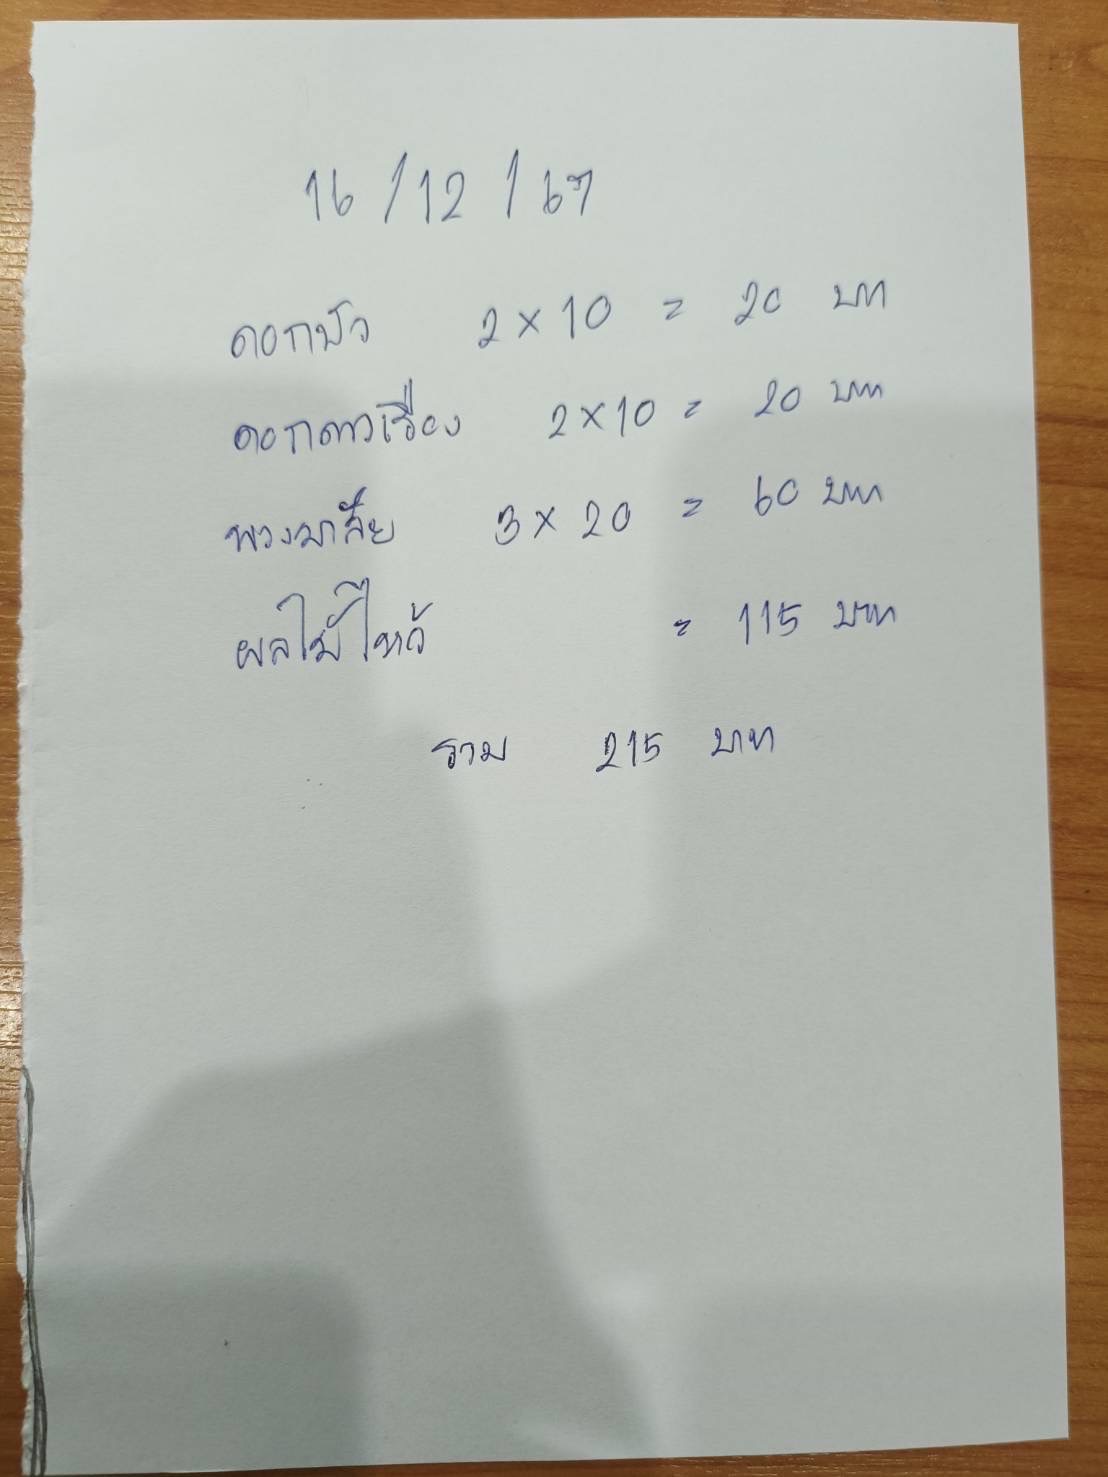 16/12/67
ดอกบัว 2 × 10 = 20 บาท
ดอกดาวเรือง 2 × 10 = 20 บาท
พวงมาลัย 3 × 20 = 60 บาท
ผลไม้ไหว้ = 115 บาท
รวม 215 บาท